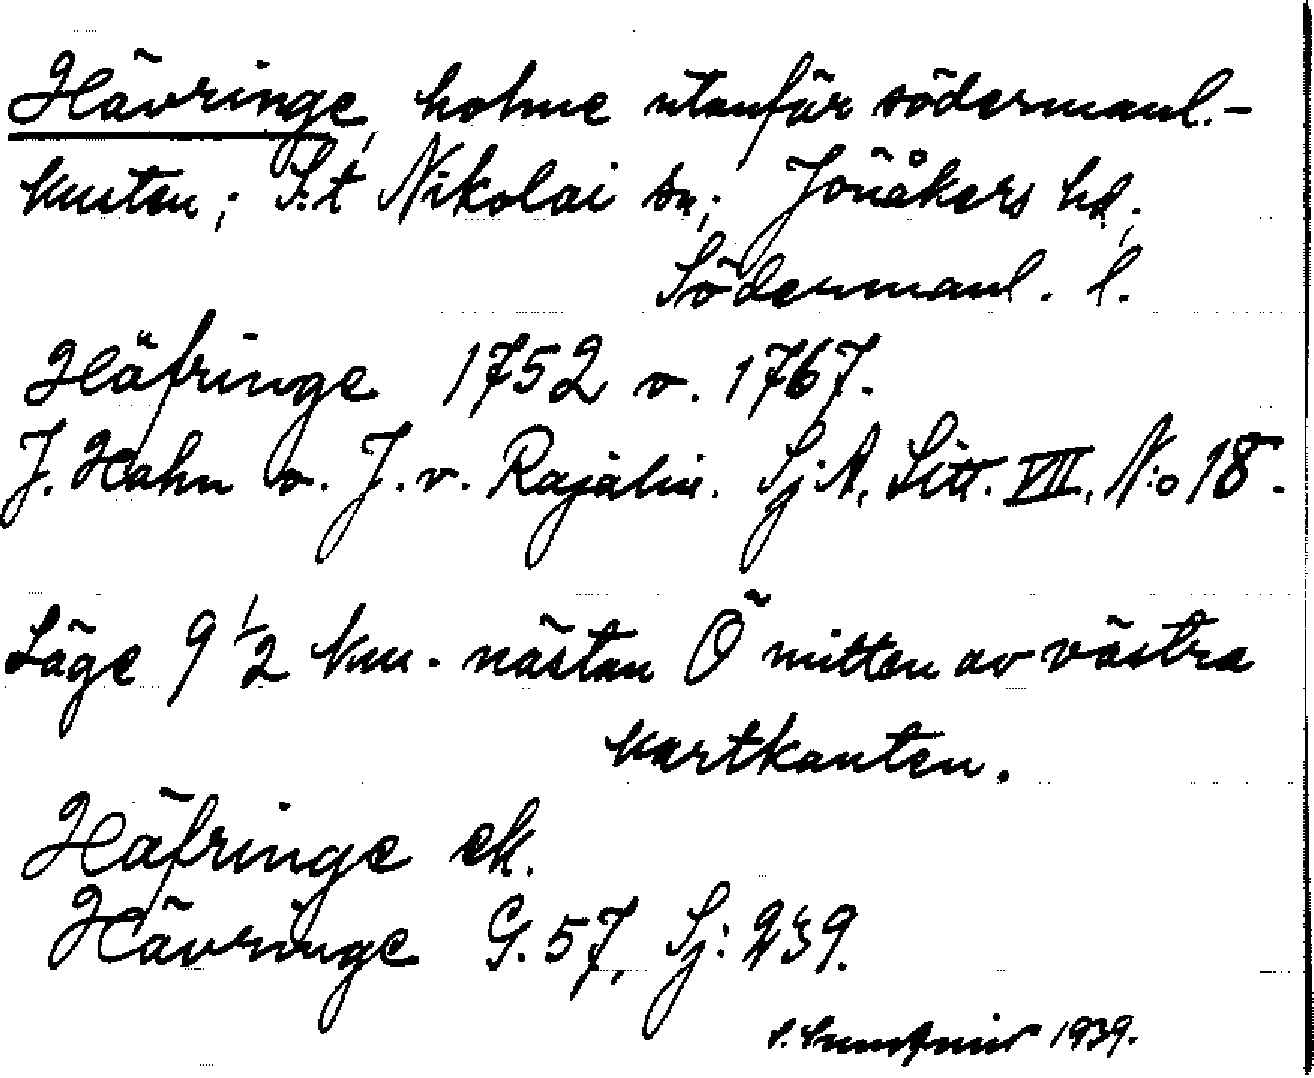 Hävringe, holme utanför södermanl.-
kusten; S:t Nikolai sn; Jönåkers hd;
Södermanl. l.
Häfringe 1752 o. 1767.
J. Hahn o. J. v. Rajalin. Sj:A, Litt. VII, N:o 18.
Läge 9 1/2 km. nästan Ö mitten av västra
kartkanten.
Häfringe ek.
Hävringe G. 57, Sj: 239.
1939.